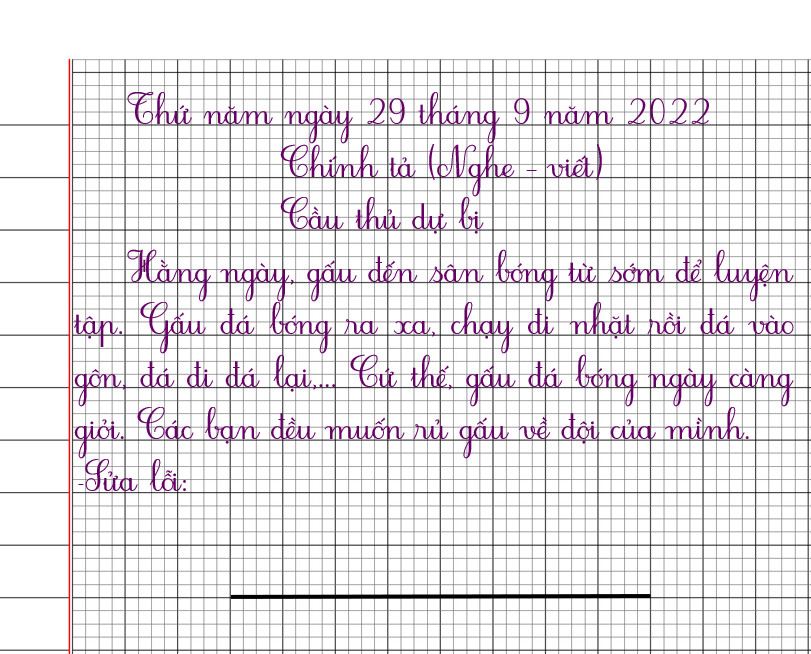 Thứ năm ngày 29 tháng 9 năm 2022
Chính tả (Nghe - viết)
Cầu thủ dự bị
Hằng ngày, gấu đến sân bóng từ sớm để luyện
tập. Gấu đá bóng ra xa, chạy đi nhặt rồi đá vào
gôn, đá đi đá lại,... Cứ thế, gấu đá bóng ngày càng
giỏi. Các bạn đều muốn rủ gấu về đội của mình.
-Sửa lỗi: